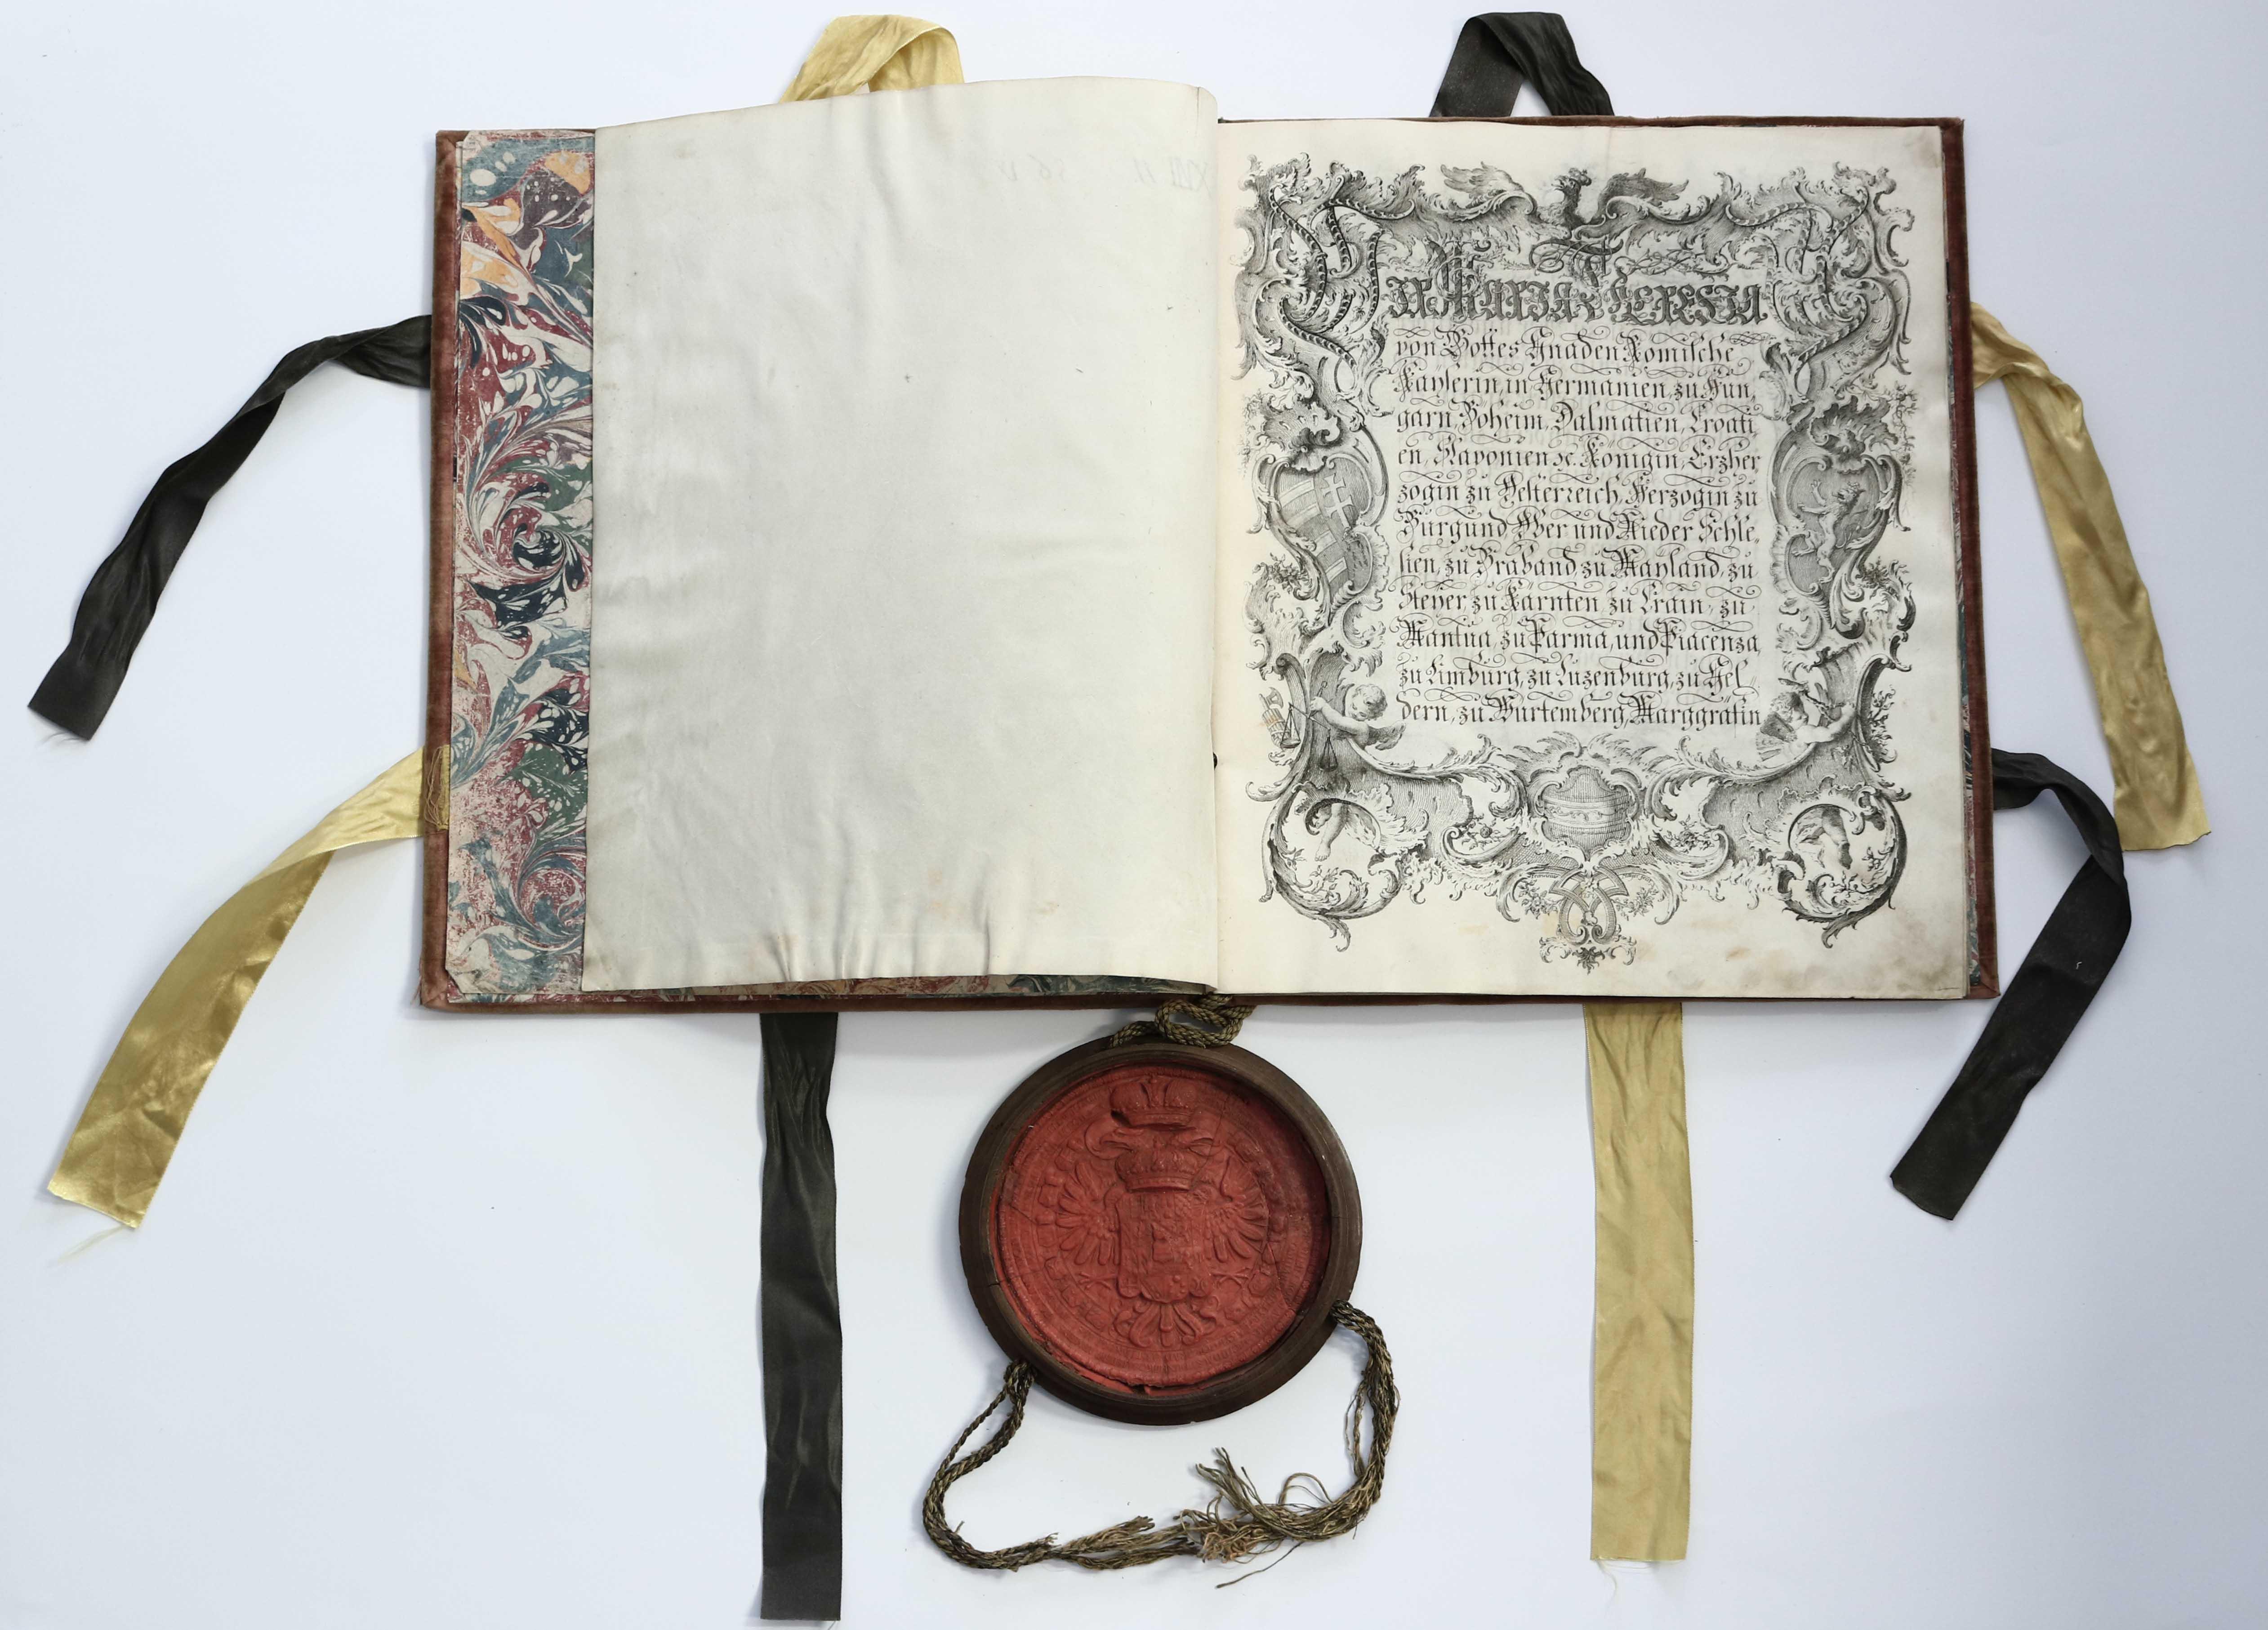 WIR MARIA THERESIA
von Gottes Gnaden Römische
Kayserin, in Germanien, zu Hun,
garn, Böheim, Dalmatien, Croati
en, Slavonien ꝛc. Königin, Erzher
zogin zu Oesterreich, Herzogin zu
Burgund, Ober und Nieder Schle,
sien, zu Braband, zu Mayland, zu
Steyer, zu Kärnten, zu Crain, zu
Mantua, zu Parma, und Piacenza,
zu Limburg, zu Luzenburg, zu Gel
dern, zu Würtemberg, Marggräfin